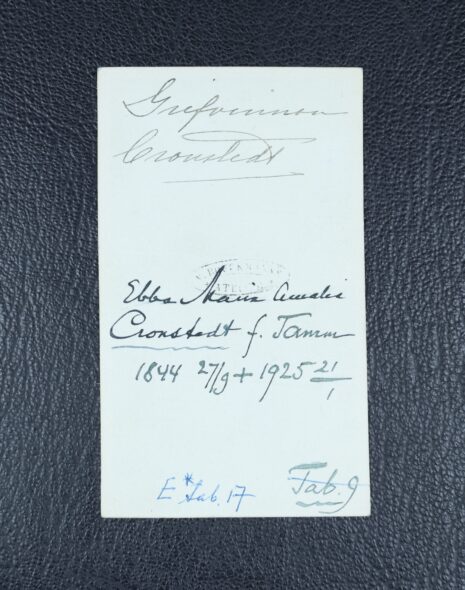 Grefvinnan
Cronstedt
Ebba Maria Amalia
Cronstedt f. Tamm
1844 27/9 + 1925 21/1
E* Tab. 17
Tab. 9